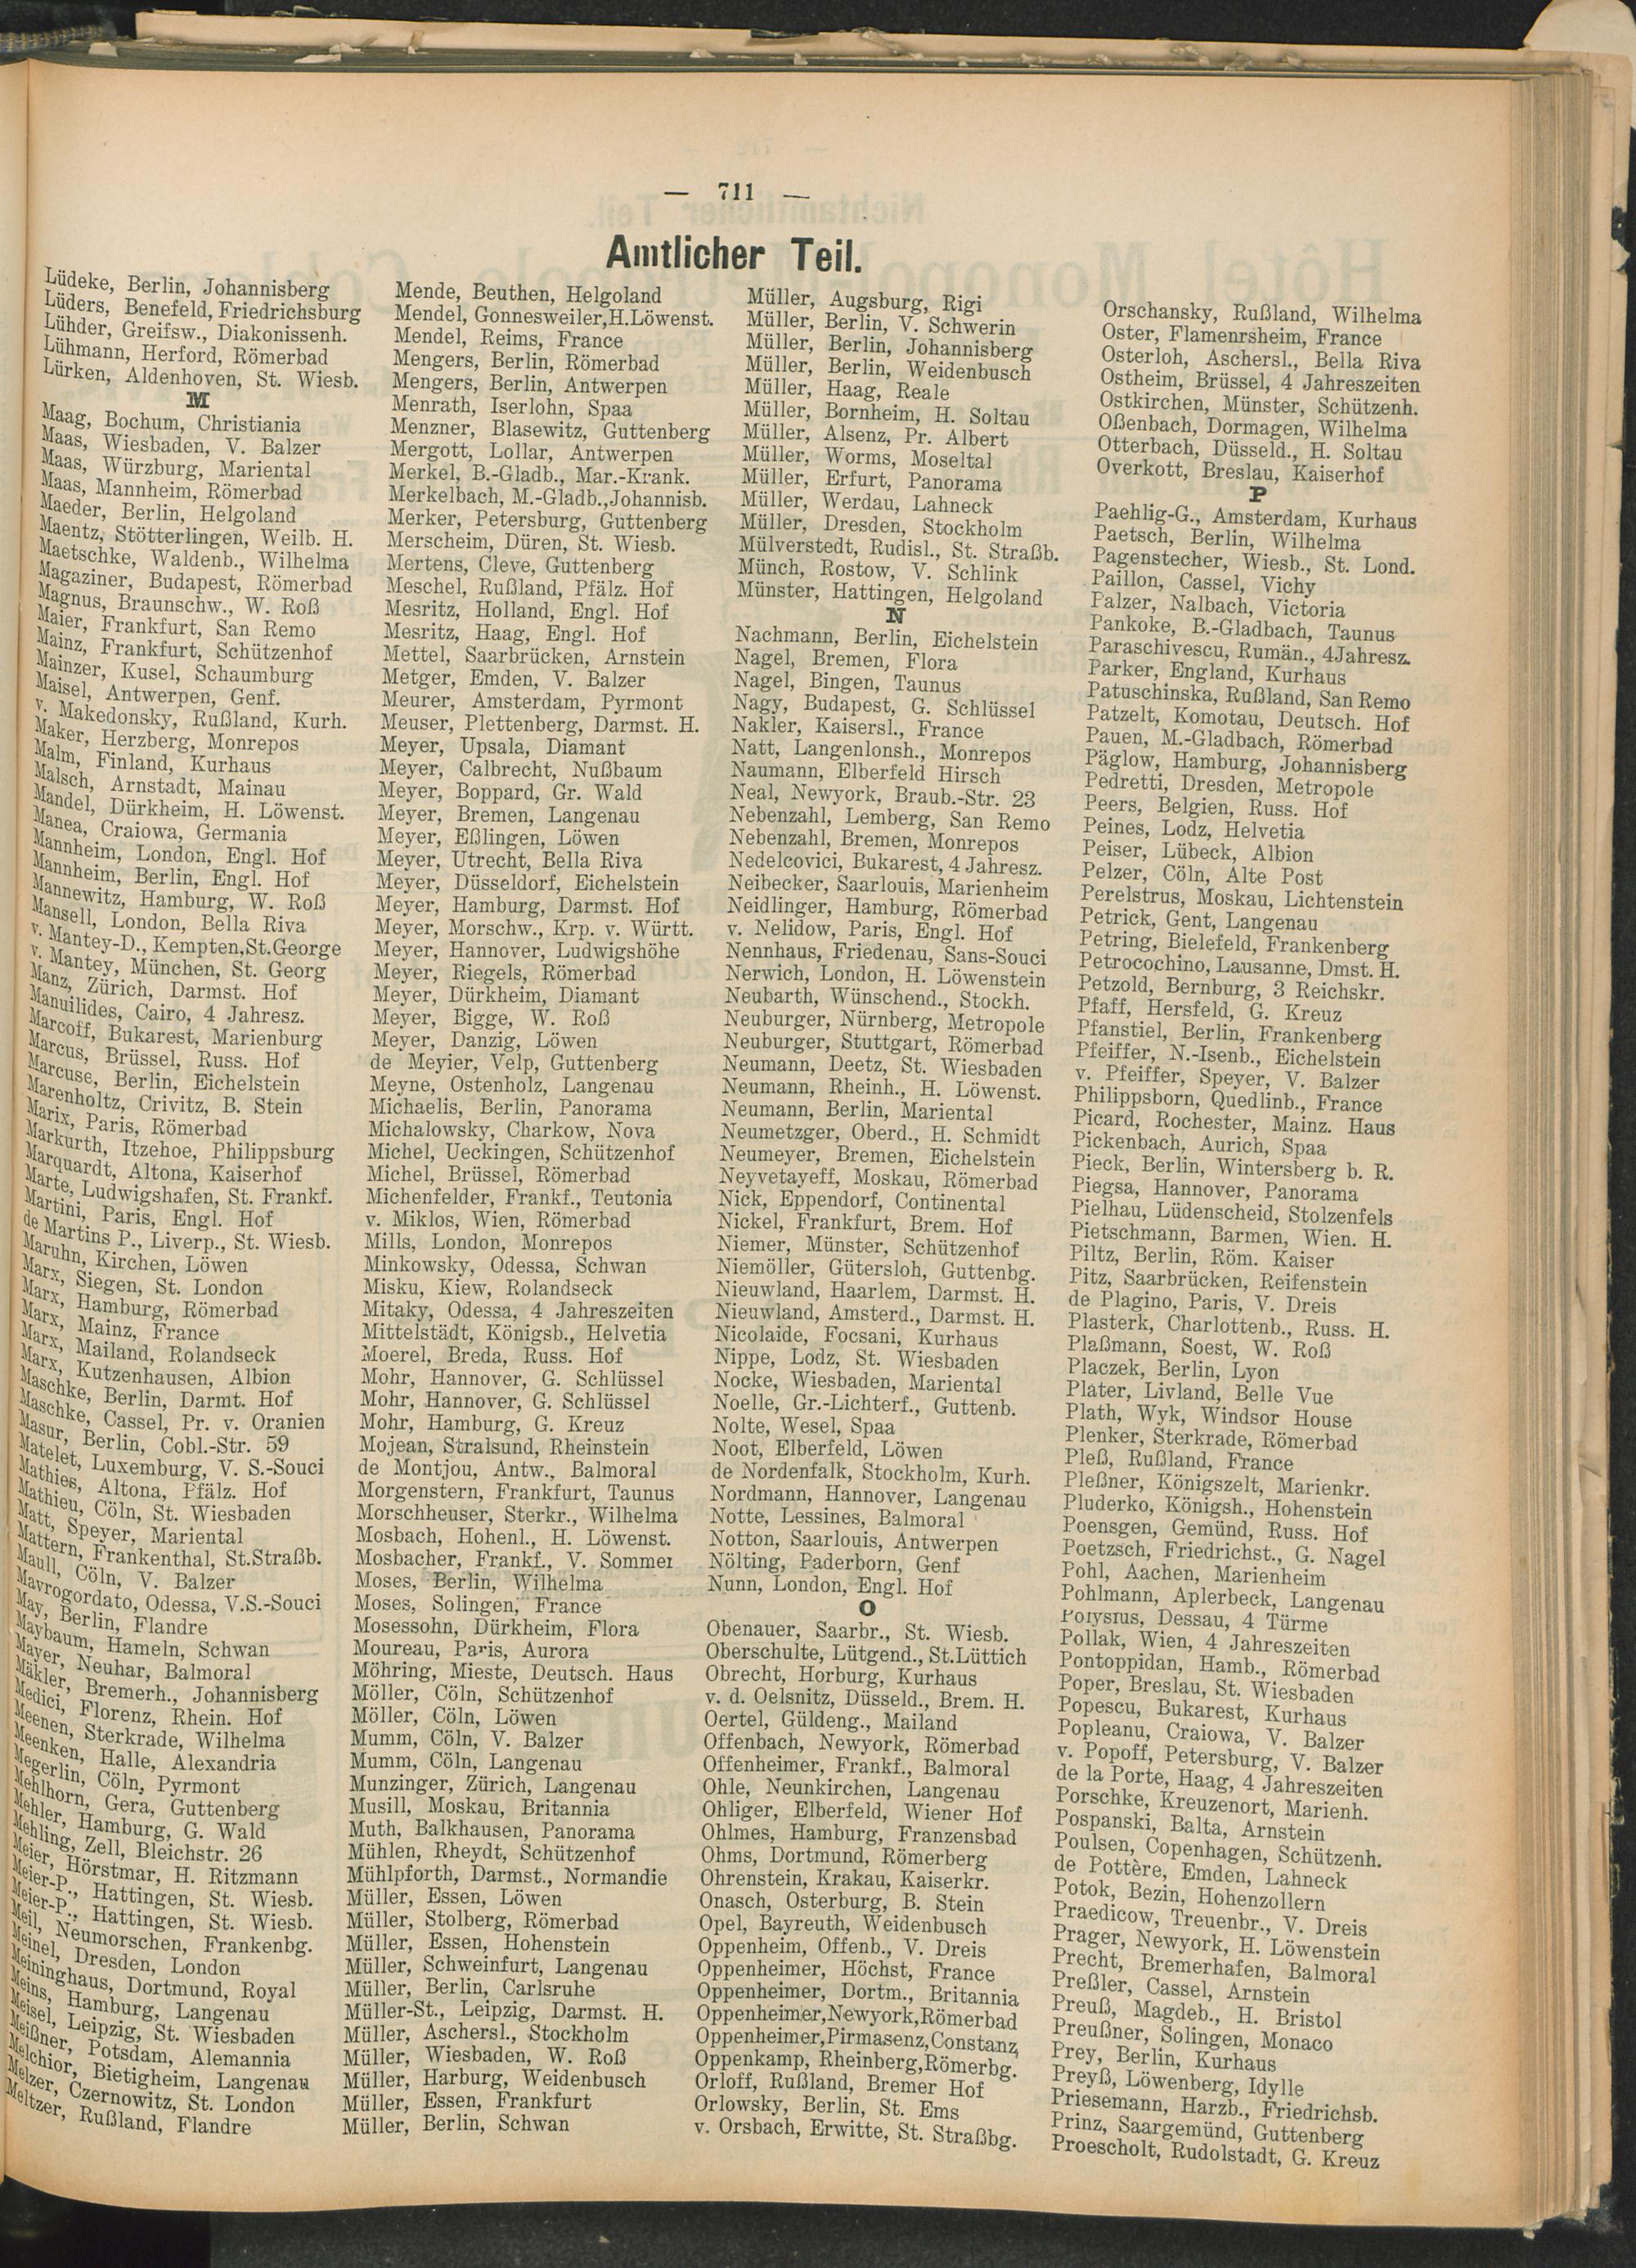 — 711 —
Amtlicher Teil.
Lüdeke, Berlin, Johannisberg
Lüders, Benefeld, Friedrichsburg
Lühder, Greifsw., Diakonissenh.
Lühmann, Herford, Römerbad
Lürken, Aldenhoven, St. Wiesb.
M
Maag, Bochum, Christiania
Maas, Wiesbaden, V. Balzer
Maas, Würzburg, Mariental
Maas, Mannheim, Römerbad
Maeder, Berlin, Helgoland
Maentz, Stötterlingen, Weilb. H.
Maetschke, Waldenb., Wilhelma
Magaziner, Budapest, Römerbad
Magnus, Braunschw., W. Roß
Maier, Frankfurt, San Remo
Mainz, Frankfurt, Schützenhof
Mainzer, Kusel, Schaumburg
Maisel, Antwerpen, Genf.
v. Makedonsky, Rußland, Kurh.
Maker, Herzberg, Monrepos
Malm, Finland, Kurhaus
Malsch, Arnstadt, Mainau
Mandel, Dürkheim, H. Löwenst.
Manea, Craiowa, Germania
Mannheim, London, Engl. Hof
Mannheim, Berlin, Engl. Hof
Mannewitz, Hamburg, W. Roß
Mansell, London, Bella Riva
v. Mantey-D., Kempten,St.George
v. Mantey, München, St. Georg
Manz, Zürich, Darmst. Hof
Manuilides, Cairo, 4 Jahresz.
Marcoff, Bukarest, Marienburg
Marcus, Brüssel, Russ. Hof
Marcuse, Berlin, Eichelstein
Marenholtz, Crivitz, B. Stein
Marix, Paris, Römerbad
Markurth, Itzehoe, Philippsburg
Marquardt, Altona, Kaiserhof
Marte, Ludwigshafen, St. Frankf.
Martini, Paris, Engl. Hof
de Martins P., Liverp., St. Wiesb.
Maruhn, Kirchen, Löwen
Marx, Siegen, St. London
Marx, Hamburg, Römerbad
Marx, Mainz, France
Marx, Mailand, Rolandseck
Marx, Kutzenhausen, Albion
Maschke, Berlin, Darmt. Hof
Maschke, Cassel, Pr. v. Oranien
Masur, Berlin, Cobl.-Str. 59
Matelet, Luxemburg, V. S.-Souci
Mathies, Altona, Pfälz. Hof
Mathieu, Cöln, St. Wiesbaden
Matt, Speyer, Mariental
Mattern, Frankenthal, St.Straßb.
Maull, Cöln, V. Balzer
Mavrogordato, Odessa, V.S.-Souci
May, Berlin, Flandre
Maybaum, Hameln, Schwan
Mayer, Neuhar, Balmoral
Mäkler, Bremerh., Johannisberg
Medici, Florenz, Rhein. Hof
Meenen, Sterkrade, Wilhelma
Meenken, Halle, Alexandria
Megerlin, Cöln, Pyrmont
Mehlhorn, Gera, Guttenberg
Mehler, Hamburg, G. Wald
Mehling, Zell, Bleichstr. 26
Meier, Hörstmar, H. Ritzmann
Meier-P., Hattingen, St. Wiesb.
Meier-P., Hattingen, St. Wiesb.
Meil, Neumorschen, Frankenbg.
Meinel, Dresden, London
Meininghaus, Dortmund, Royal
Meins, Hamburg, Langenau
Meisel, Leipzig, St. Wiesbaden
Meißner, Potsdam, Alemannia
Melchior, Bietigheim, Langenau
Melzer, Czernowitz, St. London
Meltzer, Rußland, Flandre
Mende, Beuthen, Helgoland
Mendel, Gonnesweiler,H.Löwenst.
Mendel, Reims, France
Mengers, Berlin, Römerbad
Mengers, Berlin, Antwerpen
Menrath, Iserlohn, Spaa
Menzner, Blasewitz, Guttenberg
Mergott, Lollar, Antwerpen
Merkel, B.-Gladb., Mar.-Krank.
Merkelbach, M.-Gladb.,Johannisb.
Merker, Petersburg, Guttenberg
Merscheim, Düren, St. Wiesb.
Mertens, Cleve, Guttenberg
Meschel, Rußland, Pfälz. Hof
Mesritz, Holland, Engl. Hof
Mesritz, Haag, Engl. Hof
Mettel, Saarbrücken, Arnstein
Metger, Emden, V. Balzer
Meurer, Amsterdam, Pyrmont
Meuser, Plettenberg, Darmst. H.
Meyer, Upsala, Diamant
Meyer, Calbrecht, Nußbaum
Meyer, Boppard, Gr. Wald
Meyer, Bremen, Langenau
Meyer, Eßlingen, Löwen
Meyer, Utrecht, Bella Riva
Meyer, Düsseldorf, Eichelstein
Meyer, Hamburg, Darmst. Hof
Meyer, Morschw., Krp. v. Württ.
Meyer, Hannover, Ludwigshöhe
Meyer, Riegels, Römerbad
Meyer, Dürkheim, Diamant
Meyer, Bigge, W. Roß
Meyer, Danzig, Löwen
de Meyier, Velp, Guttenberg
Meyne, Ostenholz, Langenau
Michaelis, Berlin, Panorama
Michalowsky, Charkow, Nova
Michel, Ueckingen, Schützenhof
Michel, Brüssel, Römerbad
Michenfelder, Frankf., Teutonia
v. Miklos, Wien, Römerbad
Mills, London, Monrepos
Minkowsky, Odessa, Schwan
Misku, Kiew, Rolandseck
Mitaky, Odessa, 4 Jahreszeiten
Mittelstädt, Königsb., Helvetia
Moerel, Breda, Russ. Hof
Mohr, Hannover, G. Schlüssel
Mohr, Hannover, G. Schlüssel
Mohr, Hamburg, G. Kreuz
Mojean, Stralsund, Rheinstein
de Montjou, Antw., Balmoral
Morgenstern, Frankfurt, Taunus
Morschheuser, Sterkr., Wilhelma
Mosbach, Hohenl., H. Löwenst.
Mosbacher, Frankf., V. Sommer
Moses, Berlin, Wilhelma
Moses, Solingen, France
Mosessohn, Dürkheim, Flora
Moureau, Paris, Aurora
Möhring, Mieste, Deutsch. Haus
Möller, Cöln, Schützenhof
Möller, Cöln, Löwen
Mumm, Cöln, V. Balzer
Mumm, Cöln, Langenau
Munzinger, Zürich, Langenau
Musill, Moskau, Britannia
Muth, Balkhausen, Panorama
Mühlen, Rheydt, Schützenhof
Mühlpforth, Darmst., Normandie
Müller, Essen, Löwen
Müller, Stolberg, Römerbad
Müller, Essen, Hohenstein
Müller, Schweinfurt, Langenau
Müller, Berlin, Carlsruhe
Müller-St., Leipzig, Darmst. H.
Müller, Aschersl., Stockholm
Müller, Wiesbaden, W. Roß
Müller, Harburg, Weidenbusch
Müller, Essen, Frankfurt
Müller, Berlin, Schwan
Müller, Augsburg, Rigi
Müller, Berlin, V. Schwerin
Müller, Berlin, Johannisberg
Müller, Berlin, Weidenbusch
Müller, Haag, Reale
Müller, Bornheim, H. Soltau
Müller, Alsenz, Pr. Albert
Müller, Worms, Moseltal
Müller, Erfurt, Panorama
Müller, Werdau, Lahneck
Müller, Dresden, Stockholm
Mülverstedt, Rudisl., St. Straßb.
Münch, Rostow, V. Schlink
Münster, Hattingen, Helgoland
N
Nachmann, Berlin, Eichelstein
Nagel, Bremen, Flora
Nagel, Bingen, Taunus
Nagy, Budapest, G. Schlüssel
Nakler, Kaisersl., France
Natt, Langenlonsh., Monrepos
Naumann, Elberfeld Hirsch
Neal, Newyork, Braub.-Str. 23
Nebenzahl, Lemberg, San Remo
Nebenzahl, Bremen, Monrepos
Nedelcovici, Bukarest, 4 Jahresz.
Neibecker, Saarlouis, Marienheim
Neidlinger, Hamburg, Römerbad
v. Nelidow, Paris, Engl. Hof
Nennhaus, Friedenau, Sans-Souci
Nerwich, London, H. Löwenstein
Neubarth, Wünschend., Stockh.
Neuburger, Nürnberg, Metropole
Neuburger, Stuttgart, Römerbad
Neumann, Deetz, St. Wiesbaden
Neumann, Rheinh., H. Löwenst.
Neumann, Berlin, Mariental
Neumetzger, Oberd., H. Schmidt
Neumeyer, Bremen, Eichelstein
Neyvetayeff, Moskau, Römerbad
Nick, Eppendorf, Continental
Nickel, Frankfurt, Brem. Hof
Niemer, Münster, Schützenhof
Niemöller, Gütersloh, Guttenbg.
Nieuwland, Haarlem, Darmst. H.
Nieuwland, Amsterd., Darmst. H.
Nicolaide, Focsani, Kurhaus
Nippe, Lodz, St. Wiesbaden
Nocke, Wiesbaden, Mariental
Noelle, Gr.-Lichterf., Guttenb.
Nolte, Wesel, Spaa
Noot, Elberfeld, Löwen
de Nordenfalk, Stockholm, Kurh.
Nordmann, Hannover, Langenau
Notte, Lessines, Balmoral
Notton, Saarlouis, Antwerpen
Nölting, Paderborn, Genf
Nunn, London, Engl. Hof
O
Obenauer, Saarbr., St. Wiesb.
Oberschulte, Lütgend., St.Lüttich
Obrecht, Horburg, Kurhaus
v. d. Oelsnitz, Düsseld., Brem. H.
Oertel, Güldeng., Mailand
Offenbach, Newyork, Römerbad
Offenheimer, Frankf., Balmoral
Ohle, Neunkirchen, Langenau
Ohliger, Elberfeld, Wiener Hof
Ohlmes, Hamburg, Franzensbad
Ohms, Dortmund, Römerberg
Ohrenstein, Krakau, Kaiserkr.
Onasch, Osterburg, B. Stein
Opel, Bayreuth, Weidenbusch
Oppenheim, Offenb., V. Dreis
Oppenheimer, Höchst, France
Oppenheimer, Dortm., Britannia
Oppenheimer,Newyork,Römerbad
Oppenheimer,Pirmasenz,Constanz,
Oppenkamp, Rheinberg,Römerbg.
Orloff, Rußland, Bremer Hof
Orlowsky, Berlin, St. Ems
v. Orsbach, Erwitte, St. Straßbg.
Orschansky, Rußland, Wilhelma
Oster, Flamenrsheim, France
Osterloh, Aschersl., Bella Riva
Ostheim, Brüssel, 4 Jahreszeiten
Ostkirchen, Münster, Schützenh.
Oßenbach, Dormagen, Wilhelma
Otterbach, Düsseld., H. Soltau
Overkott, Breslau, Kaiserhof
P
Paehlig-G., Amsterdam, Kurhaus
Paetsch, Berlin, Wilhelma
Pagenstecher, Wiesb., St. Lond.
Paillon, Cassel, Vichy
Palzer, Nalbach, Victoria
Pankoke, B.-Gladbach, Taunus
Paraschivescu, Rumän., 4Jahresz.
Parker, England, Kurhaus
Patuschinska, Rußland, San Remo
Patzelt, Komotau, Deutsch. Hof
Pauen, M.-Gladbach, Römerbad
Päglow, Hamburg, Johannisberg
Pedretti, Dresden, Metropole
Peers, Belgien, Russ. Hof
Peines, Lodz, Helvetia
Peiser, Lübeck, Albion
Pelzer, Cöln, Alte Post
Perelstrus, Moskau, Lichtenstein
Petrick, Gent, Langenau
Petring, Bielefeld, Frankenberg
Petrocochino, Lausanne, Dmst. H.
Petzold, Bernburg, 3 Reichskr.
Pfaff, Hersfeld, G. Kreuz
Pfanstiel, Berlin, Frankenberg
Pfeiffer, N.-Isenb., Eichelstein
v. Pfeiffer, Speyer, V. Balzer
Philippsborn, Quedlinb., France
Picard, Rochester, Mainz. Haus
Pickenbach, Aurich, Spaa
Pieck, Berlin, Wintersberg b. R.
Piegsa, Hannover, Panorama
Pielhau, Lüdenscheid, Stolzenfels
Pietschmann, Barmen, Wien. H.
Piltz, Berlin, Röm. Kaiser
Pitz, Saarbrücken, Reifenstein
de Plagino, Paris, V. Dreis
Plasterk, Charlottenb., Russ. H.
Plaßmann, Soest, W. Roß
Placzek, Berlin, Lyon
Plater, Livland, Belle Vue
Plath, Wyk, Windsor House
Plenker, Sterkrade, Römerbad
Pleß, Rußland, France
Pleßner, Königszelt, Marienkr.
Pluderko, Königsh., Hohenstein
Poensgen, Gemünd, Russ. Hof
Poetzsch, Friedrichst., G. Nagel
Pohl, Aachen, Marienheim
Pohlmann, Aplerbeck, Langenau
Polysius, Dessau, 4 Türme
Pollak, Wien, 4 Jahreszeiten
Pontoppidan, Hamb., Römerbad
Poper, Breslau, St. Wiesbaden
Popescu, Bukarest, Kurhaus
Popleanu, Craiowa, V. Balzer
v. Popoff, Petersburg, V. Balzer
de la Porte, Haag, 4 Jahreszeiten
Porschke, Kreuzenort, Marienh.
Pospanski, Balta, Arnstein
Poulsen, Copenhagen, Schützenh.
de Pottère, Emden, Lahneck
Potok, Bezin, Hohenzollern
Praedicow, Treuenbr., V. Dreis
Prager, Newyork, H. Löwenstein
Precht, Bremerhafen, Balmoral
Preßler, Cassel, Arnstein
Preuß, Magdeb., H. Bristol
Preußner, Solingen, Monaco
Prey, Berlin, Kurhaus
Preyß, Löwenberg, Idylle
Priesemann, Harzb., Friedrichsb.
Prinz, Saargemünd, Guttenberg
Proescholt, Rudolstadt, G. Kreuz